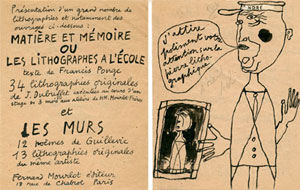 Présentation d'un grand nombre de
lithographies et notamment des
ouvrages ci-dessous :
MATIÈRE ET MÉMOIRE
OU
LES LITHOGRAPHES A L'ÉCOLE
texte de Francis Ponge
34 lithographies originales
de J. Dubuffet exécutées au cours d'un
stage en 3 mois aux Ateliers de MM. Mourlot Frères
et
LES MURS
12 poèmes de Guillevic
13 lithographies originales
du même artiste
Fernand Mourlot éditeur
18 rue de Chabrol Paris
J'attire
poliment votre
attention sur la
pierre litho-
graphique